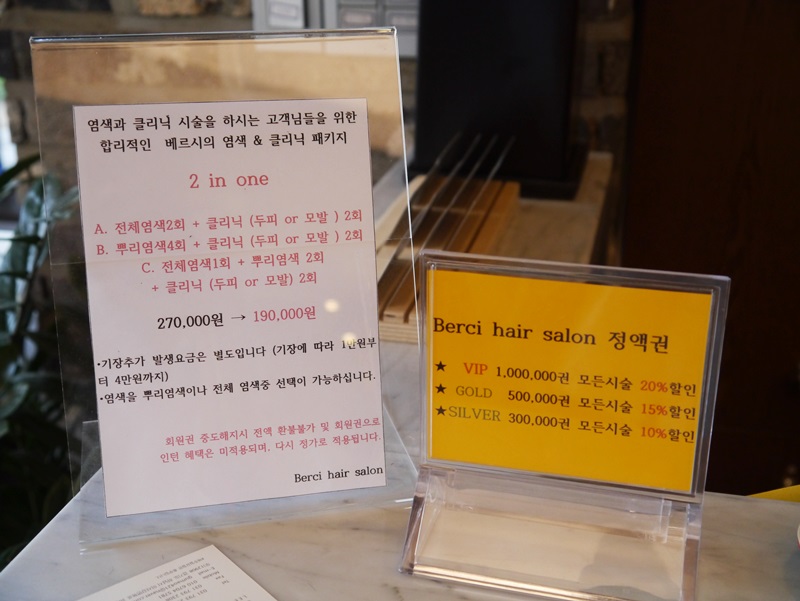 염색과 클리닉 시술을 하시는 고객님들을 위한
합리적인 베르시의 염색 & 클리닉 패키지
2 in one
A. 전체염색2회 + 클리닉 (두피 or 모발 ) 2회
B. 뿌리염색4회 + 클리닉 (두피 or 모발 ) 2회
C. 전체염색1회 + 뿌리염색 2회
+ 클리닉 (두피 or 모발) 2회
270,000원 → 190,000원
•기장추가 발생요금은 별도입니다 (기장에 따라 1만원부
터 4만원까지)
•염색을 뿌리염색이나 전체 염색중 선택이 가능하십니다.
회원권 중도해지시 전액 환불불가 및 회원권으로
인턴 혜택은 미적용되며, 다시 정가로 적용됩니다.
Berci hair salon
Berci hair salon 정액권
★ VIP 1,000,000권 모든시술 20%할인
★ GOLD 500,000권 모든시술 15%할인
★SILVER 300,000권 모든시술 10%할인